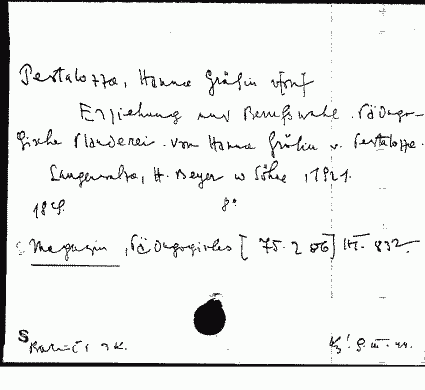 Pestalozza, Hanna Gräfin v[on]
Erziehung und Berufswahl. Pädago-
gische Plauderei. von Hanna Gräfin v. Pestalozza.
Langensalza, H. Beyer u Söhne, 1921.
18 S. 8°
Magazin, Pädagogisches [ 75. 2 06] H. 832.
S